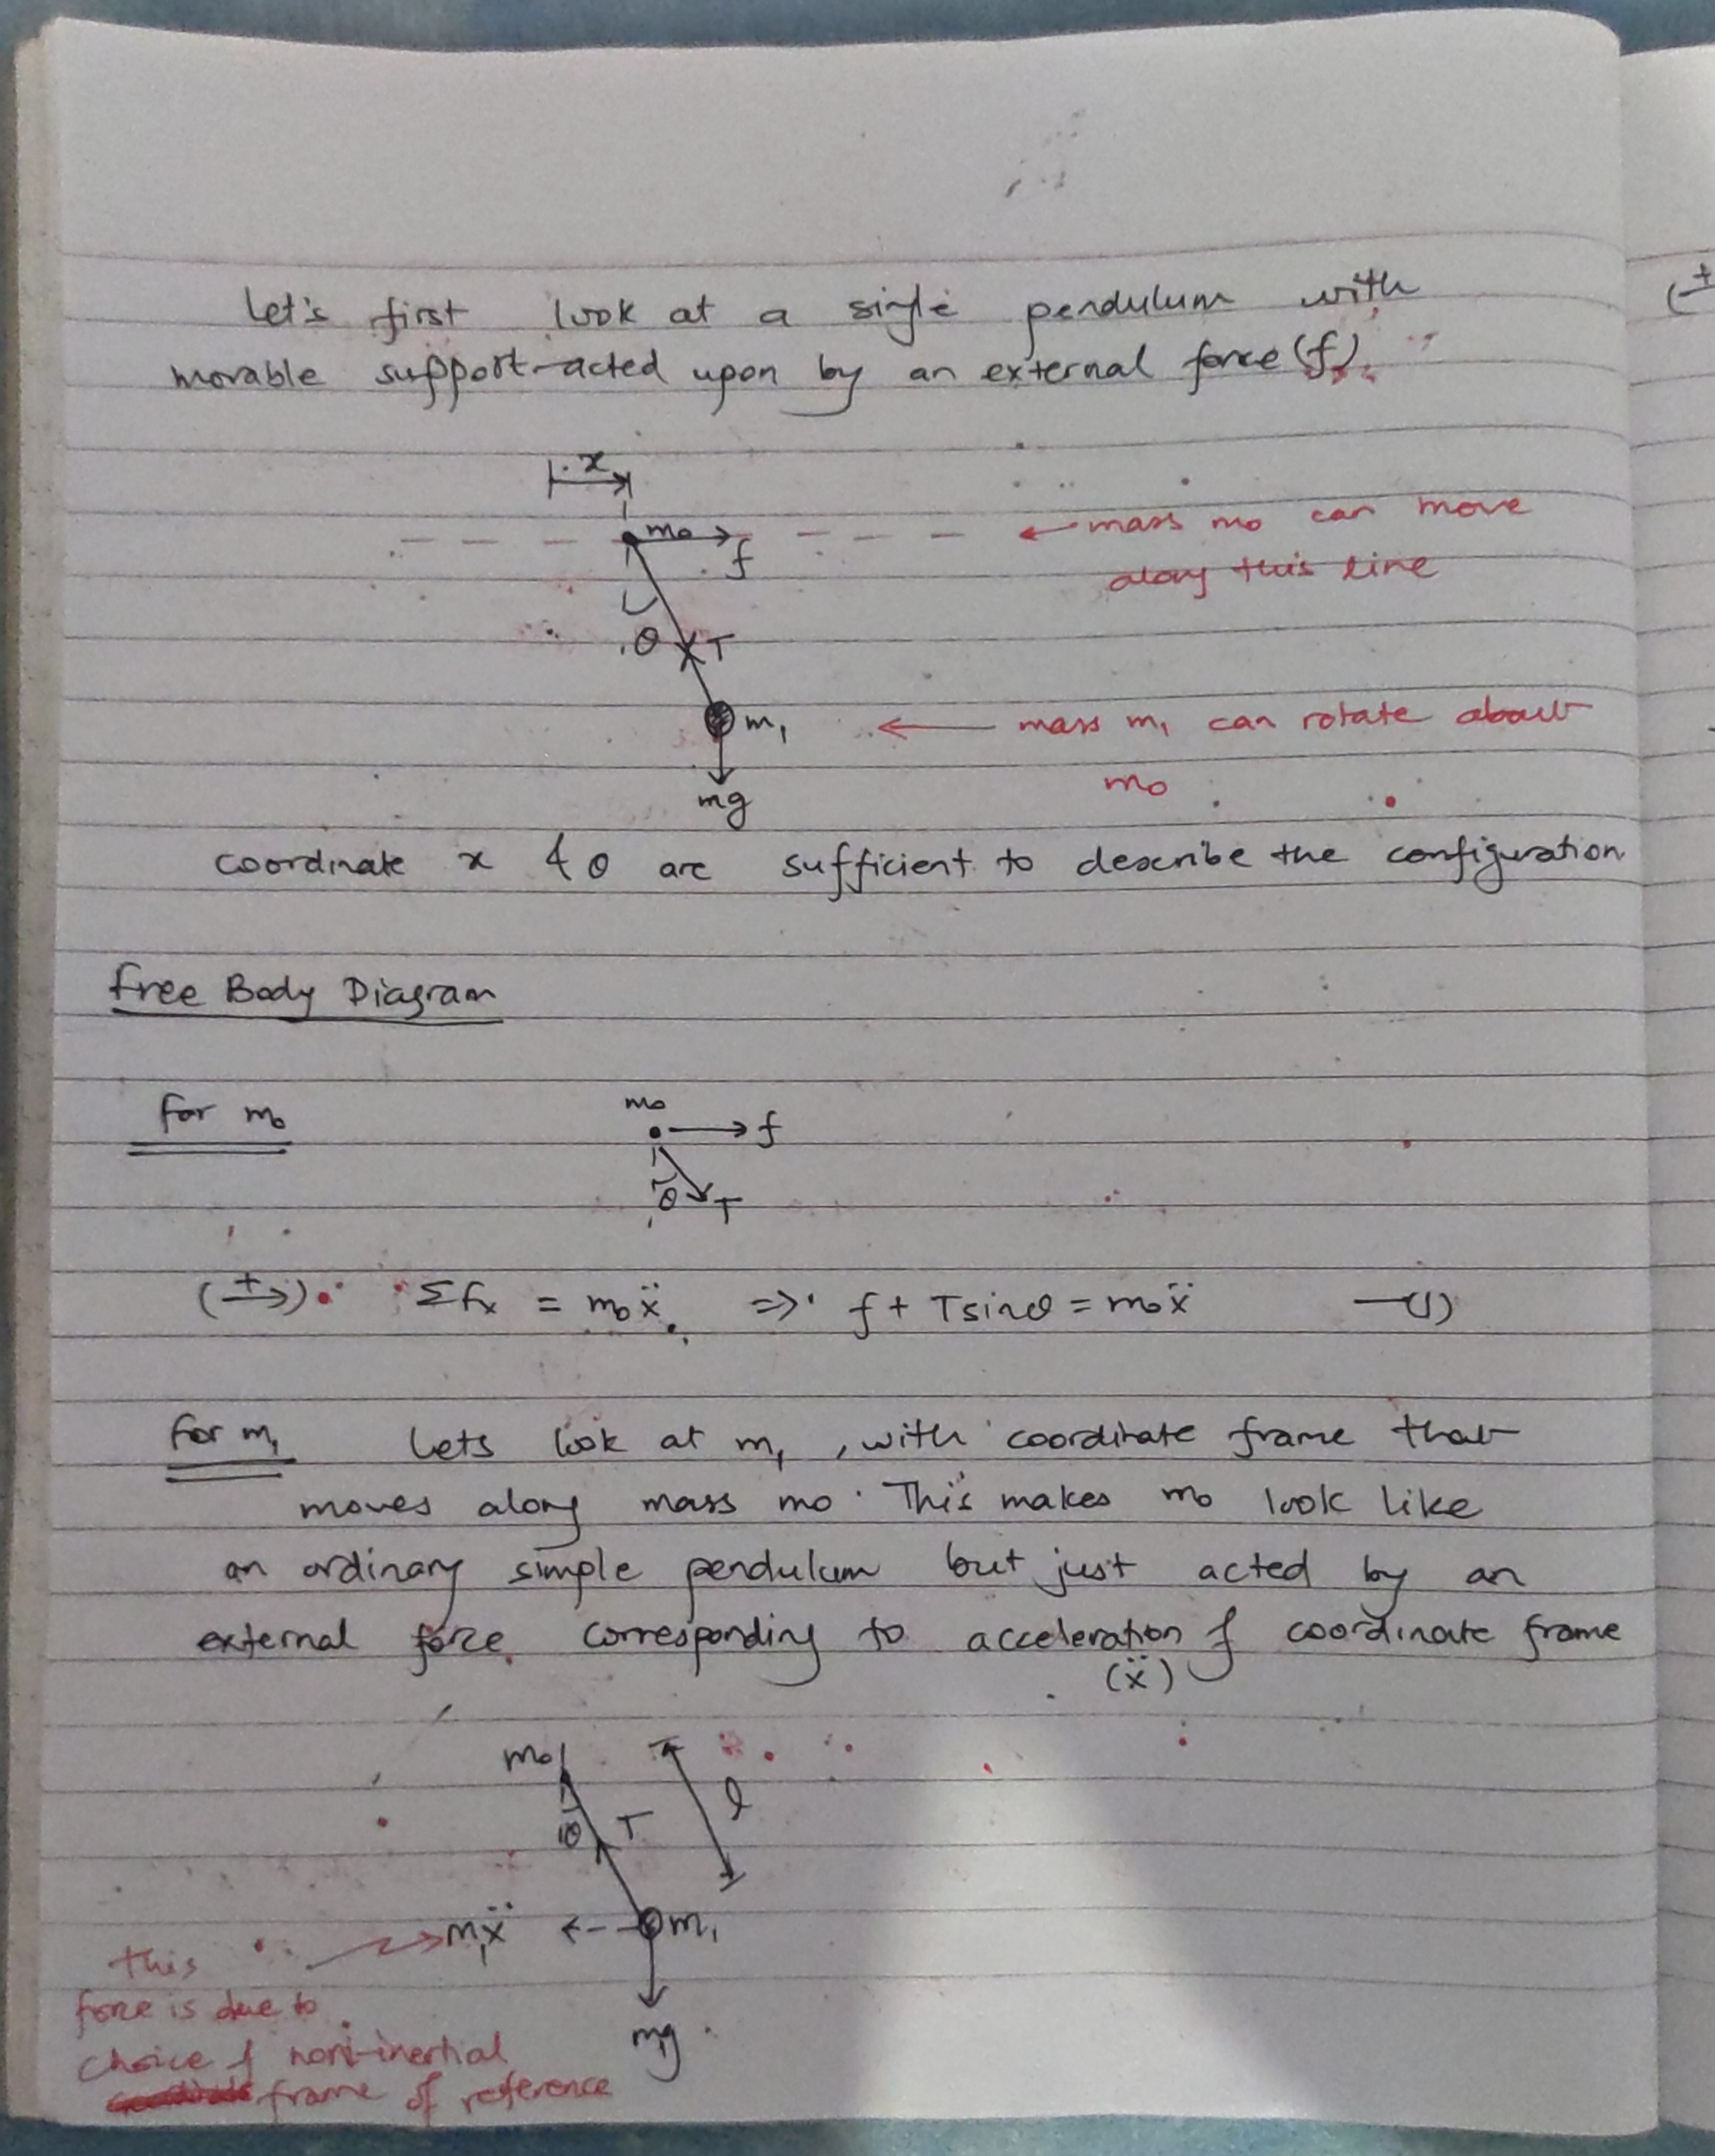 Let's first look at a single pendulum with
movable support-acted upon by an external force (f)
x
m₀ f
← mass m₀ can move
along this line
θ T
m₁
← mass m₁ can rotate about
m₀
mg
coordinate x & θ are sufficient to describe the configuration
Free Body Diagram
For m₀
m₀
f
θ T
(+→) Σfₓ = m₀ẍ ⇒ f + Tsinθ = m₀ẍ —(1)
For m₁ Lets look at m₁, with coordinate frame that
moves along mass m₀. This makes m₀ look like
an ordinary simple pendulum but just acted by an
external force corresponding to acceleration of coordinate frame
(ẍ)
m₀
l
θ T
m₁ẍ m₁
this
force is due to
choice of non-inertial
frame of reference
m₁g
(+